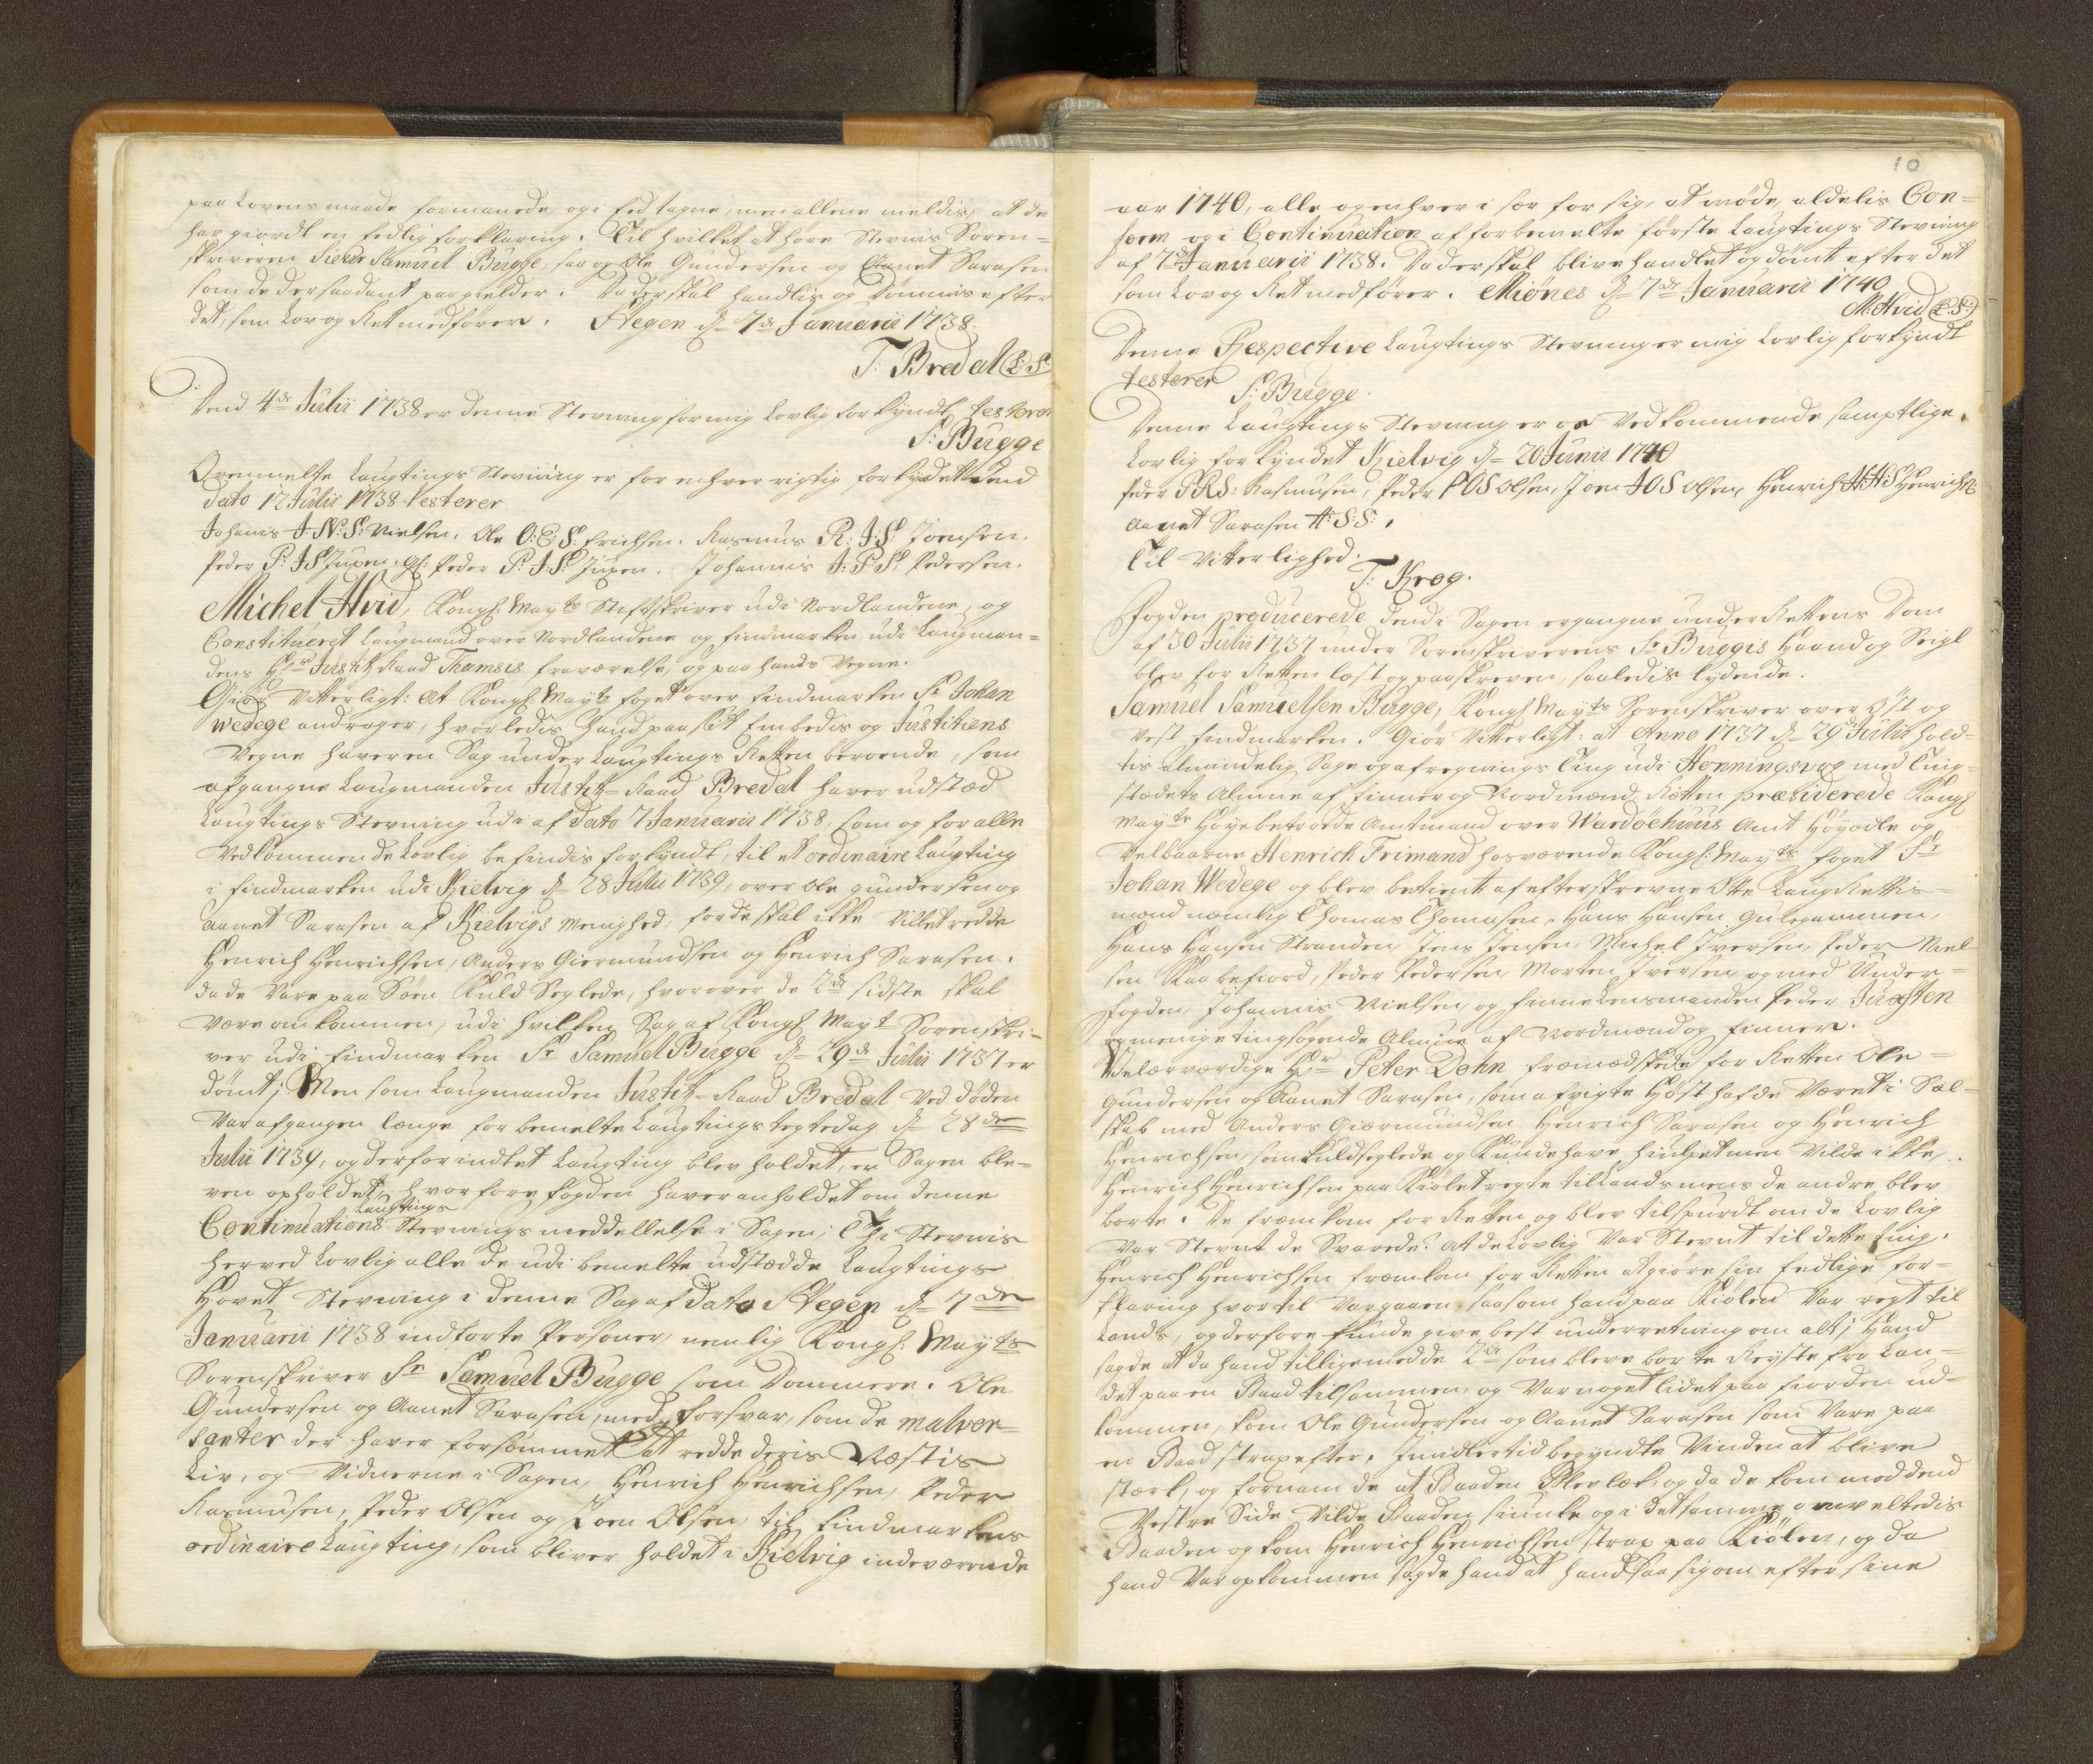 paa Lovens maade formanede, og i Eed tagne, men allene meldis, at de
har giordt en Eedlig forklaring. Til hvilket at høre Stevnis Soren-
skriveren Sieur Samuel Bugge, saa og Ole Gundersen og Aanet Sarasen
som de der saadant paagielder. Da der skal handlis og Dømmis efter
det, som Lov og Ret medfører. Stegen d. 7de Januarii 1738.
T: Bredal (L:S:)
Dend 4de Julii 1738 er denne Stevning for mig Lovlig forkyndt testerer
S: Bugge
Ovenmelte Laugtings Stevning er for enhver rigtig forkyndet Dend
Dato 12 Julii 1738 testerer
Johanis J:N:S: Nielsen. Ole O:E:S: Erichsen. Rasmus R:J:S: Joensen.
Peder P:J:S Juxen. Gl: Peder P:J:S: Juxen. Johannis J:P:S: Pedersen.
Michel Hvid, Kongl: Mayts Stiftskriver udi Nordlandene, og
Constitueret Laugmand over Nordlandene og Findmarken udi Laugman-
dens Hr Justitz Raad Thamsøs fraværelse, og paa hands Vegne.
Giør Vitterligt: At Kongl Mayts foget over Findmarken Sr Johan
Wedege andrager, hvorledis hand paa sit Embedis og Justitiens
Vegne haver en Sag under Laugtings Retten beroende, som
afgangne Laugmanden Justitz-Raad Bredal haver udstæd
Laugtings Stevning udi af Dato 7 Januarii 1738, som og for alle
Vedkommende Lovlig befindis forkyndt, til et ordinaire Laugting
i Findmarken udi Kielvig d. 28 Julii 1739, over Ole Gundersen og
Aanet Sarasen af Kielvigs Menighed, for di skal ikke Villet redde
Henrich Henrichsen, Anders Giermundsen og Henrich Sarasen.
da de Vare paa Søen Kuld Seglede, hvorover de 2de sidste skal
være omkommen, udi hvilken Sag af Kongl Mayts Sorenskri-
ver udi Findmarken Sr Samuel Bugge d. 29de Julii 1737 er
dømt; Men som Laugmanden Justitz-Raad Bredal ved Døden
Var afgangen længe for bemelte Laugtings tegtedag d. 28de
Julii 1739, og derfor indtet Laugting blev holdet, er Sagen ble-
ven opholdet, hvorfore Fogden haver anholdet om denne
Laugtings
Continuations Stevnings meddellelse i Sagen; Thi Stevnis
herved Lovlig alle de udi bemelte udstædde Laugtings
Hovet Stevning i denne Sag af Dato Stegen d. 7de
Januarii 1738 indførte Personer, nemlig Kongl: Mayts
Sorenskriver Sr Samuel Bugge som Dommere. Ole
Gundersen og Aanet Sarasen, med forsvar, som de malver-
santer der haver forsømmet at redde deris Næstis
Liv, og Vidnerne i Sagen, Henrich Henrichsen, Peder
Rasmusen, Peder Olsen og Joen Olsen, til Findmarkens
ordinaire Laugting, som bliver holdet i Kielvig indeværende
10
aar 1740, alle og enhver i sær for sig, at møde, aldelis Con-
form og i Continuation af forbemelte første Laugtings Stevning
af 7de Januarii 1738. Da der skal blive handlet og dømt efter det
som Lov og Ret medfører. Miønes d. 7de Januarii 1740
M: Hvid (L:S:)
Denne Respective Laugtings Stevning er mig Lovlig forkyndt
testerer
S: Bugge.
Denne Laugtings Stevning er os Vedkommende samptlige.
Lovlig forkyndet Kielvig d. 20 Junii 1740
Peder P R S: Rasmusen, Peder P O S Olsen, Joen J O S Olsen, Henrich H H S Henrichs:
Aanet Sarasen A:S:S:.
Til Vitterlighed.
T: Krog.
Fogden producerede dend i Sagen ergangne under Rettens Dom
af 30 Julii 1737 under Sorenskriverens Sr Buggis Haand og Seigl
blev for Retten læst og paaskreven, saaledis lydende.
Samuel Samuelsen Bugge, Kongl Mayts Sorenskriver over Øst og
Vest Findmarken. Giør Vitterligt: at Anno 1737 d. 29de Julii hold-
tis almindelig Sage og afregnings Ting udi Honningsvog med Ting-
stædets Almue af Finner og Nordmænd, Retten præsiderede Kongl
Mayts Høyebetroede Amtmand over Wardøehuus Amt Høyædle og
Velbaarne Henrich Frimand hosværende Kongl: Mayts foget Sr
Johan Wedege og blev betient af efterskrevne Otte Laug Rettis-
mænd nemlig Thomas Thomasen, Hans Hansen Gulegammen,
Hans Hansen Stranden Jens Jensen, Michel Iversen, Peder Niel-
sen Kaabefiord, Peder Pedersen Morten Iversen, og med Under-
fogden Johannis Nielsen, og Finnelensmanden Peder Juxsten
og menige tingsøgende Almue af Nordmænd og Finner.
Velærværdige Hr Peter Dahn fremædskede for Retten Ole
Gundersen og Aanet Sarasen, som afvigte Høst hafde Været i Sæl-
skab med Anders Giærmundsen Henrich Sarasen og Henrich
Henrichsen, som Kuldseglede og Kunde have hiulpet men Vilde ikke,
Henrich Henrichsen paa Kiølet regte til Lands mens de andre blev
borte. De fremkom for Retten og blev tilspurdt om de Lovlig
Var Stevnt de Svarede: at de Lovlig Var Stevnt til dette Ting.
Henrich Henrichsen fremkom for Retten at giøre sin Eedlige for-
klaring hvortil Vargaaen, saasom hand paa Kiølen Var regt til
Lands, og derfore kunde give best underretning om alt; Hand
sagde at da hand tilligemedde 2de som bleve borte Reyste fra Lan-
det paa en Baad tilsammen, og Var noget lidet paa fiorden ud-
kommen, kom Ole Gundersen og Aanet Sarasen som Vare paa
en Baad strax efter. Imidlertid begyndte Vinden at blive
stærk, og fornam de at Baaden Blev læk, og da de kom mod dend
Vestre Side Vilde Baaden siunke og i det samme omveltedis
Baaden og kom Henrich Henrichsen strax paa Kiølen, og da
hand Var opkommen sagde hand at hand saa sig om efter sine